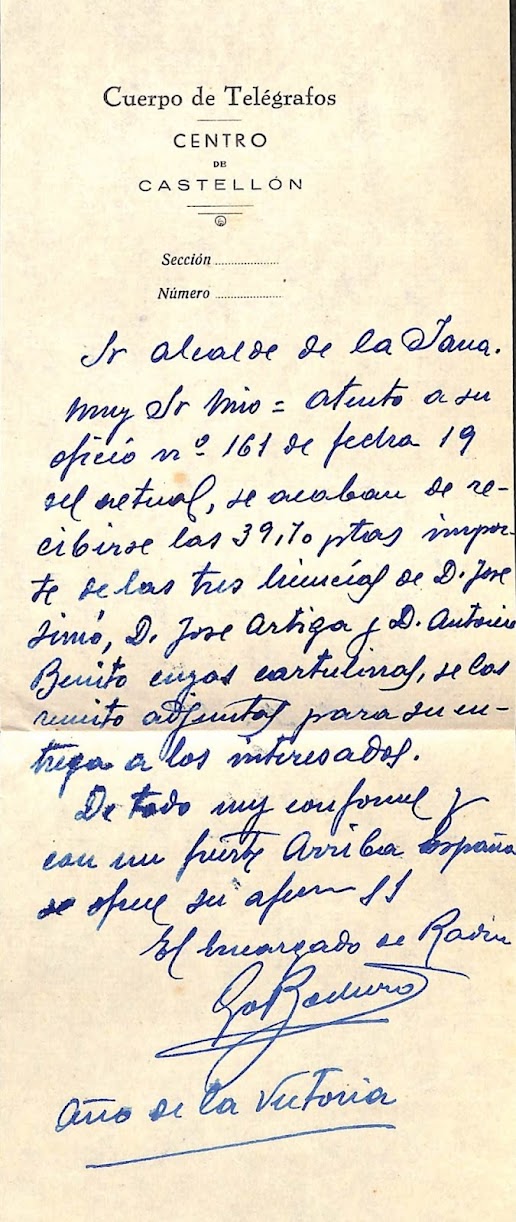 Cuerpo de Telégrafos
CENTRO
DE
CASTELLÓN
Sección ....................
Número .....................
Sr alcalde de la Jana.
Muy Sr Mio = Atento a su
oficio nº 161 de fecha 19
del actual, se acaban de re-
cibirse las 39,70 ptas impor-
te de las tres licencias de D. Jose
Simó, D. Jose Artiga y D. Antonio
Benito cuyas cartulinas, se las
remito adjuntas para su en-
trega a los interesados.
De todo muy conforme y
con un fuerte Arriba España
se ofrece su afmo SS
El Encargado de Radio
Año de la Victoria